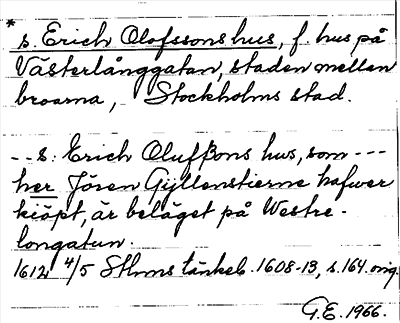 * s. Erich Olofssons hus, f. hus på
Västerlånggatan, staden mellan
broarna, Stockholms stad.
- - s. Erich Olufßons hus, som - - -
her Jören Gyllenstierne hafwer
kiöpt, är beläget på Westre-
longatun.
1612 4/5 Sthms tänkeb. 1608-13, s. 164. orig.
G.E. 1966.